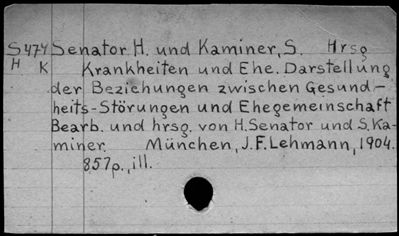 S474 Senator H. und Kaminer, S. Hrsg
H K Krankheiten und Ehe. Darstellung
der Beziehungen zwischen Gesund-
heits-Störungen und Ehegemeinschaft
Bearb. und hrsg. von H. Senator und S. Ka-
miner. München, J.F. Lehmann, 1904.
857p., ill.